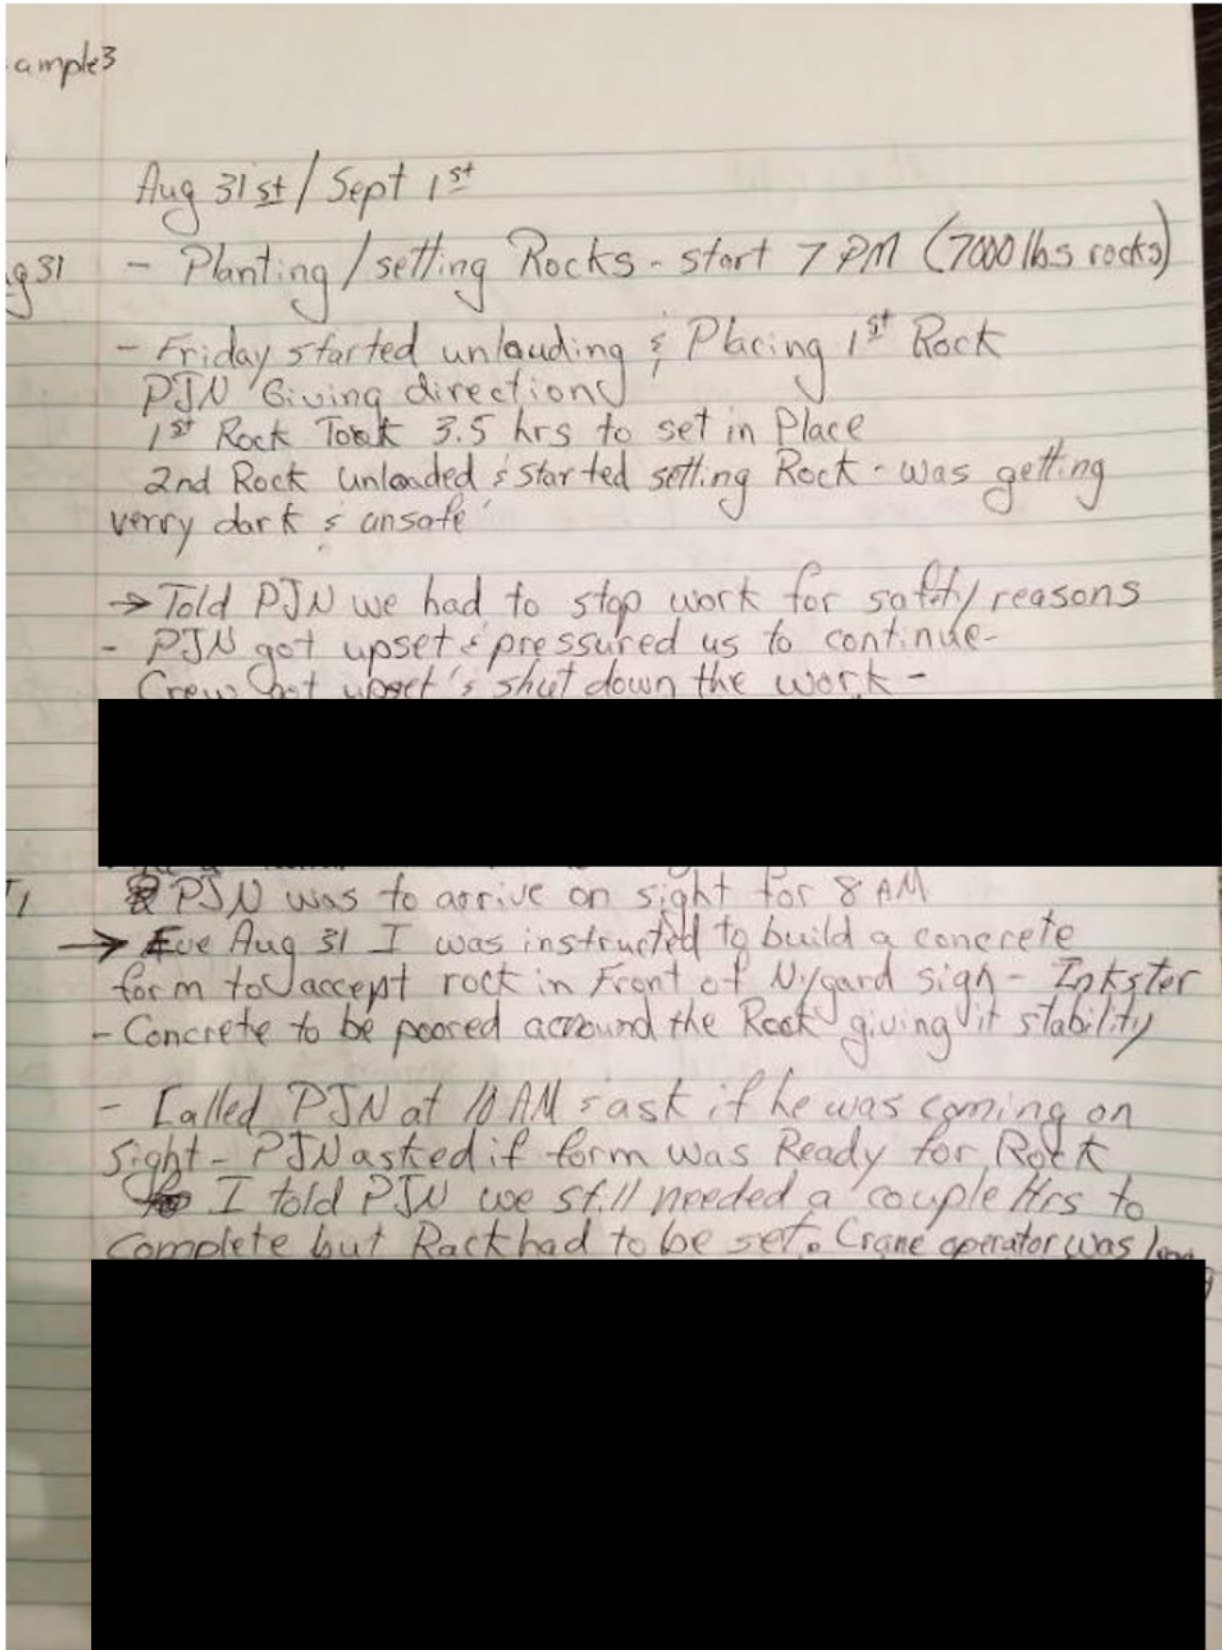 ample3
Aug 31st / Sept 1st
g 31 - Planting / setting Rocks - start 7 PM (7000 lbs rocks)
- Friday started unloading & Placing 1st Rock
PJN Giving directions
1st Rock Took 3.5 hrs to set in Place
2nd Rock unloaded & started setting Rock - was getting
verry dark & unsafe
→ Told PJN we had to stop work for safety reasons
- PJN got upset & pressured us to continue -
Crew got upset & shut down the work -
1 PJN was to arrive on sight for 8 AM
→ Eve Aug 31 I was instructed to build a concrete
form to accept rock in Front of Nygard sign - Inkster
- Concrete to be poored arround the Rock giving it stability
- Called PJN at 10 AM & ask if he was coming on
sight - PJN asked if form was Ready for Rock
I told PJN we still needed a couple Hrs to
Complete but Rock had to be set. Crane operator was